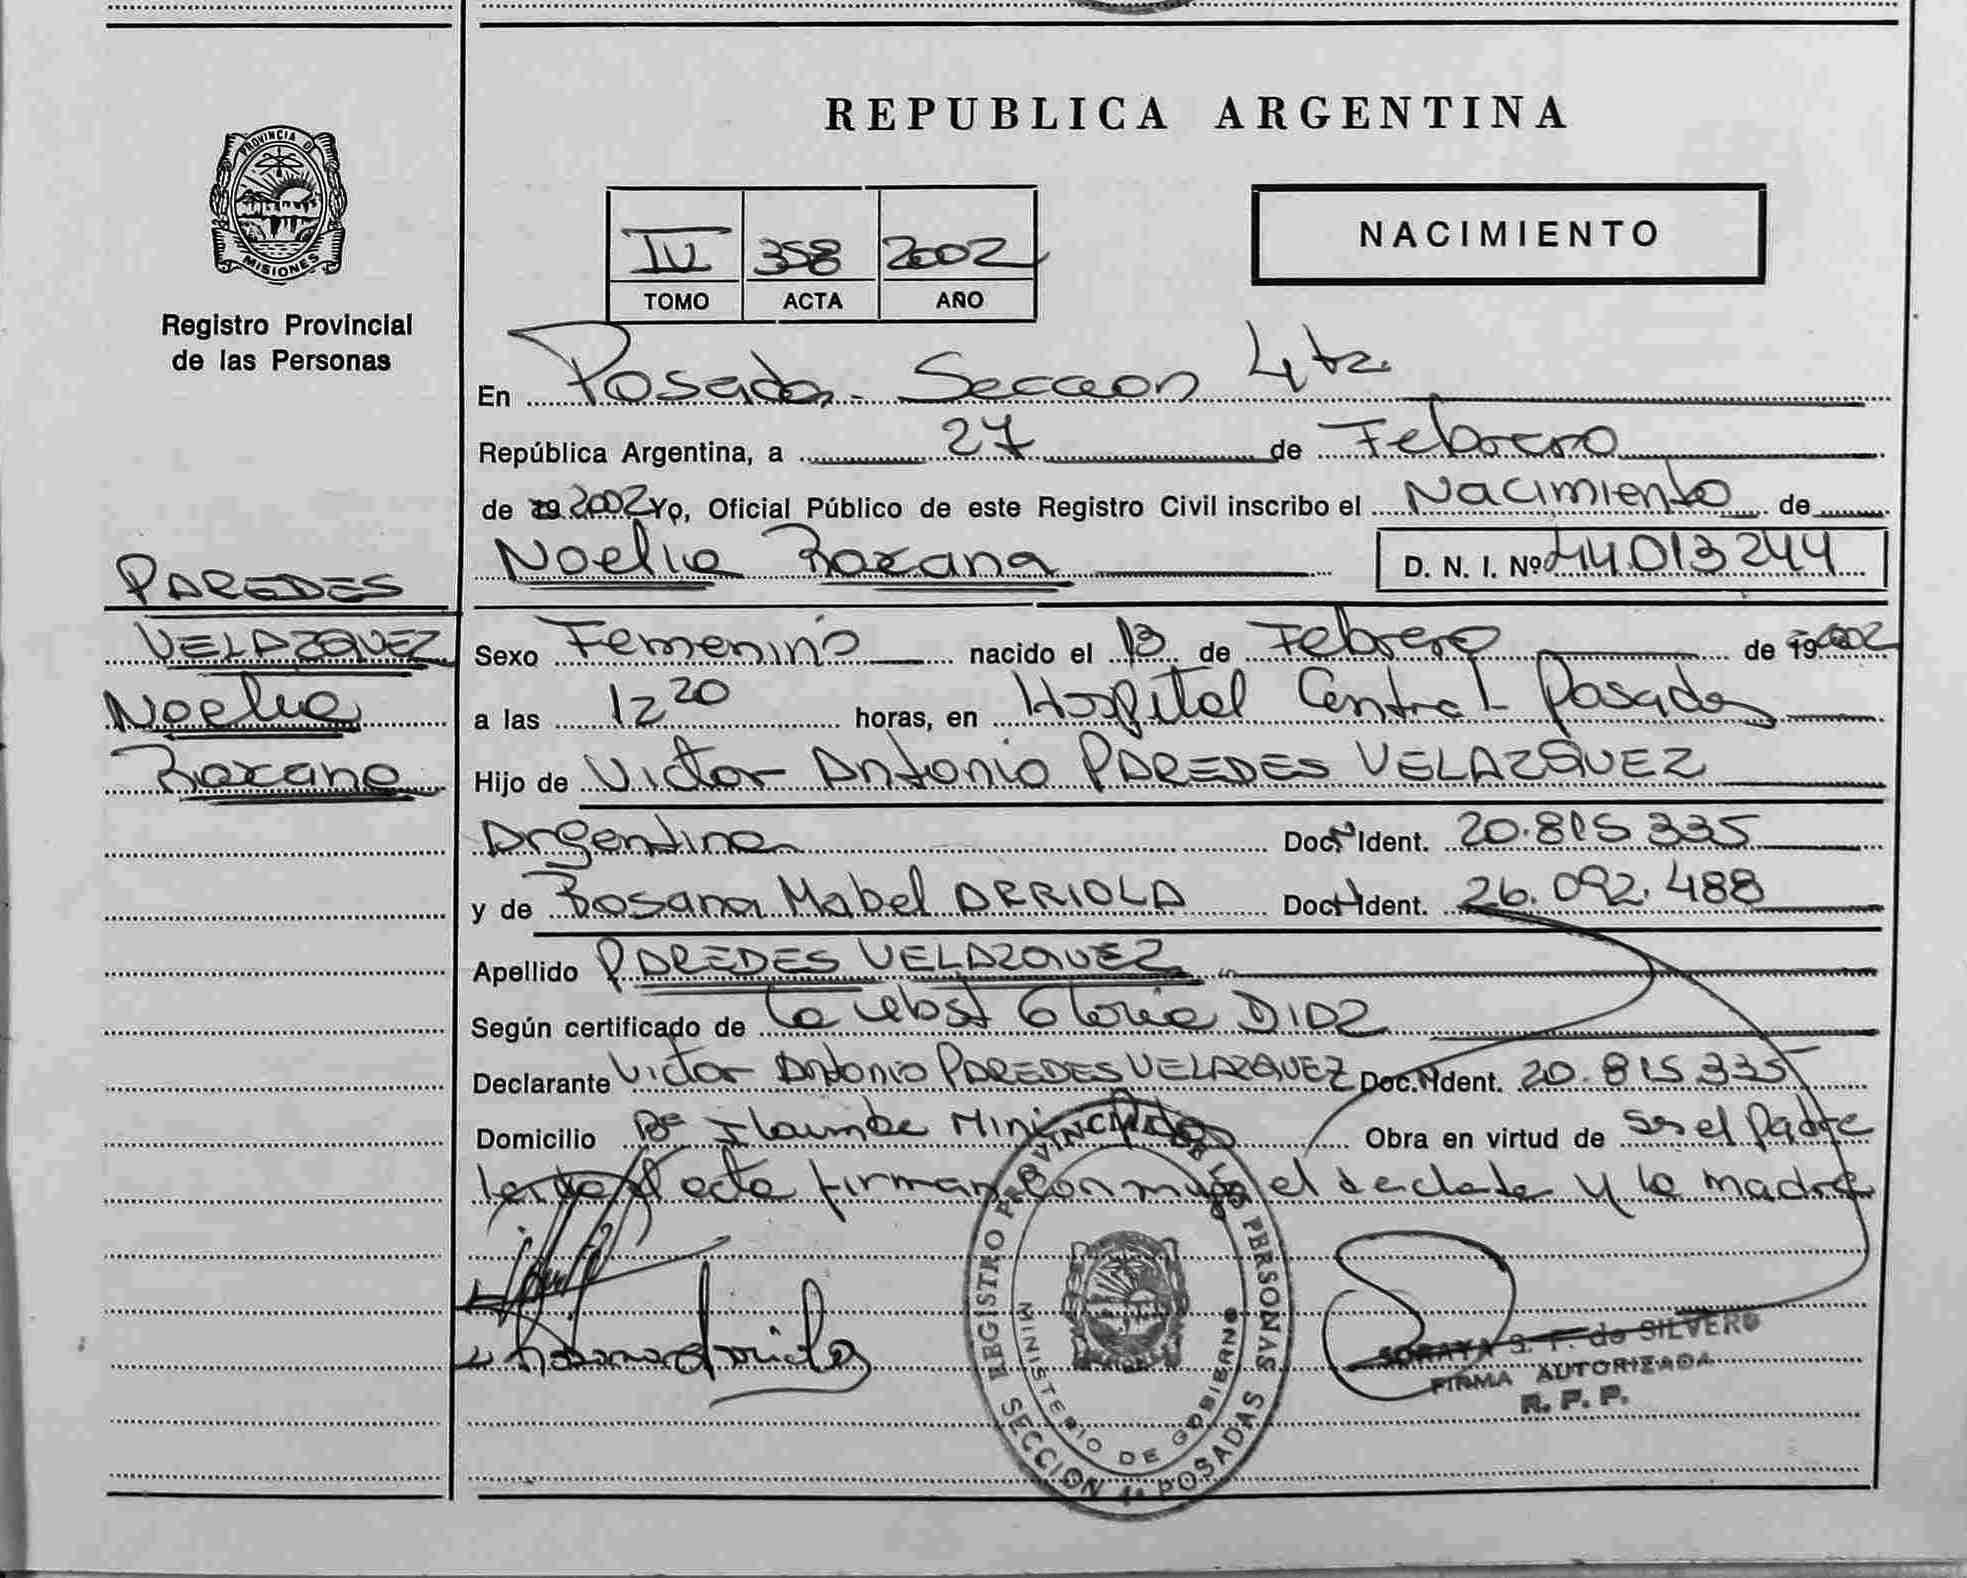 REPUBLICA ARGENTINA
PROVINCIA DE
MISIONES
Registro Provincial
de las Personas
IV 358 2002
TOMO ACTA AÑO
NACIMIENTO
En Posadas Seccion 4ta.
República Argentina, a 27 de Febrero
de 19 2002 Yo, Oficial Público de este Registro Civil inscribo el Nacimiento de
Noelia Roxana D. N. I. Nº 44.013244
PAREDES
VELAZQUEZ
Noelia
Roxana
Sexo Femenino nacido el 13 de Febrero de 19 2002
a las 12 20 horas, en Hospital Central Posadas
Hijo de Victor Antonio PAREDES VELAZQUEZ
Argentina Doc. Ident. 20.815.335
y de Rosana Mabel ARRIOLA Doc. Ident. 26.092.488
Apellido PAREDES VELAZQUEZ
Según certificado de la Obst Gloria DIAZ
Declarante Victor Antonio PAREDES VELAZQUEZ Doc. Ident. 20.815.335
Domicilio Obra en virtud de ser el Padre
acta firman conmigo el y la madre
REGISTRO PROVINCIAL DE LAS PERSONAS
MINISTERIO DE GOBIERNO
SECCION POSADAS
SORAYA S. F. de SILVERO
FIRMA AUTORIZADA
R. P. P.